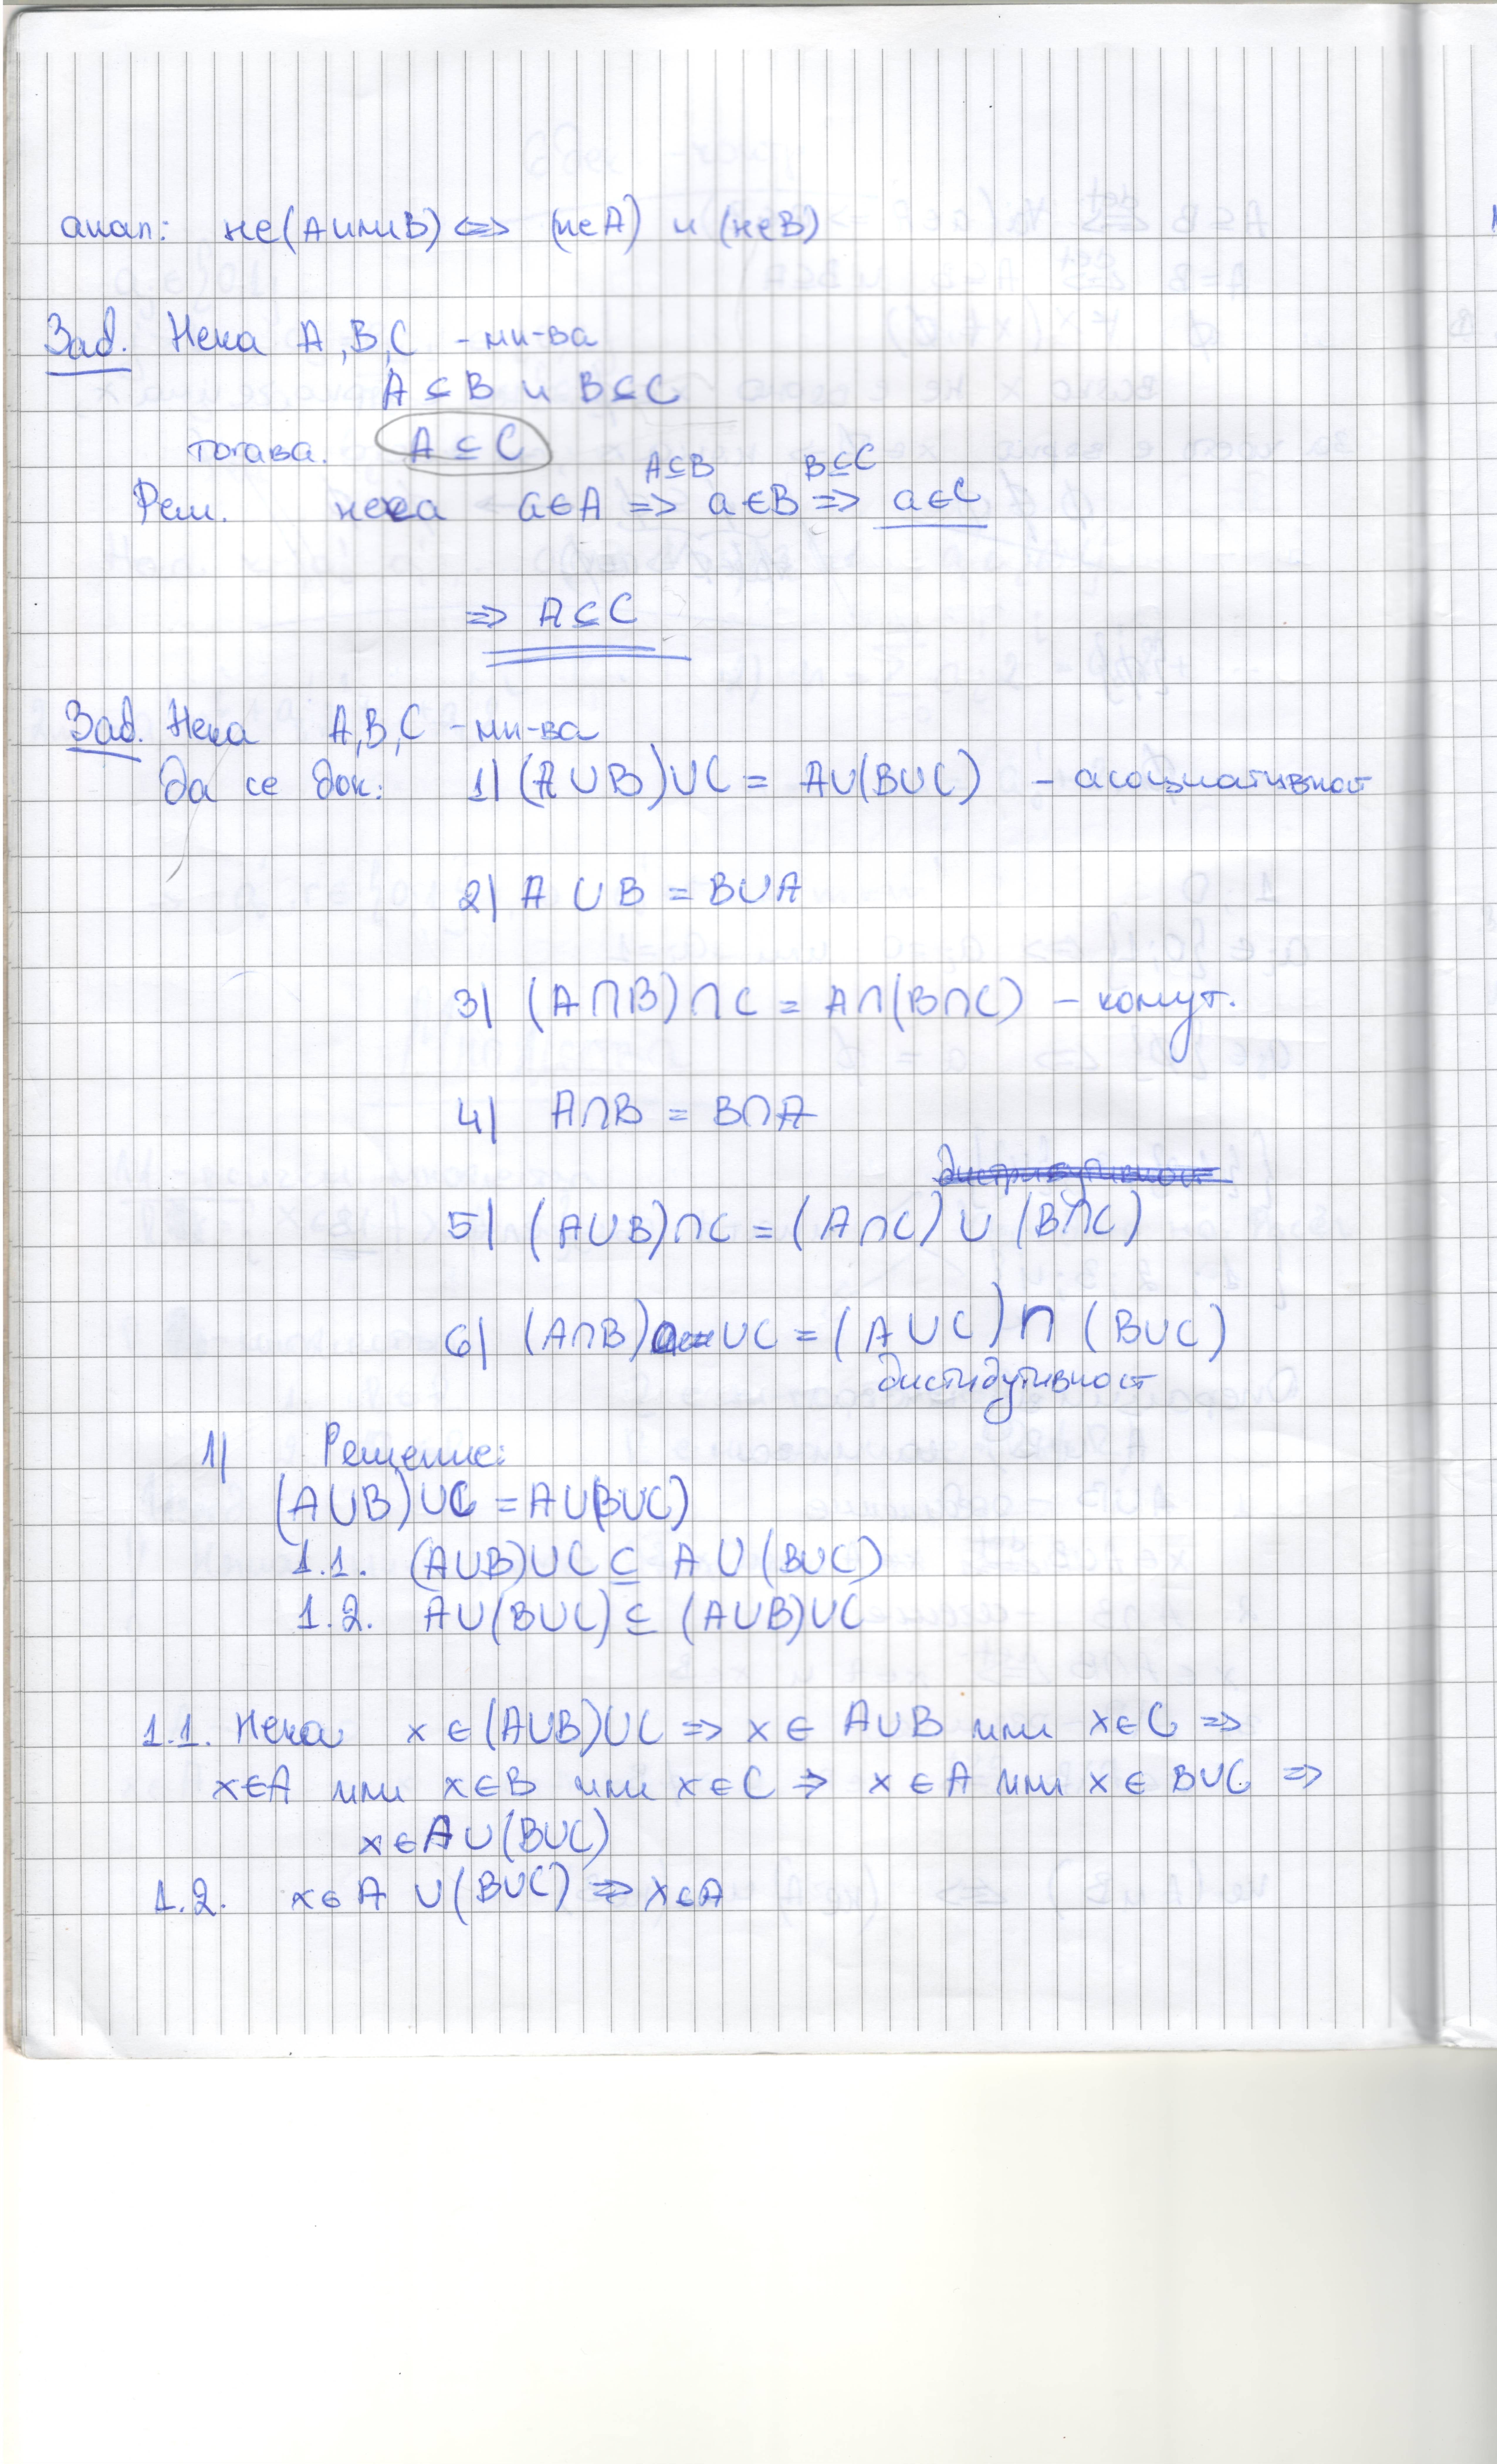 анал: не(A или B) <=> (не A) и (не B)
Зад. Нека A, B, C - мн-ва
A ⊆ B и B ⊆ C
тогава. A ⊆ C
A⊆B B⊆C
Реш. нека a∈A => a∈B => a∈C
=> A⊆C
Зад. Нека A, B, C - мн-ва
Да се док: 1| (A∪B)∪C = A∪(B∪C) - асоциативност
2| A ∪ B = B∪A
3| (A∩B)∩C = A∩(B∩C) - комут.
4| A∩B = B∩A
дистрибутивност
5| (A∪B)∩C = (A∩C) ∪ (B∩C)
6| (A∩B) ∪C = (A∪C) ∩ (B∪C)
дистибутивност
1| Решение:
(A∪B)∪C = A∪(B∪C)
1.1. (A∪B)∪C ⊆ A ∪ (B∪C)
1.2. A∪(B∪C) ⊆ (A∪B)∪C
1.1. Нека x ∈ (A∪B)∪C => x ∈ A∪B или x∈C =>
x∈A или x∈B или x∈C => x∈A или x ∈ B∪C =>
x∈A∪(B∪C)
1.2. x∈A ∪(B∪C) => x∈A